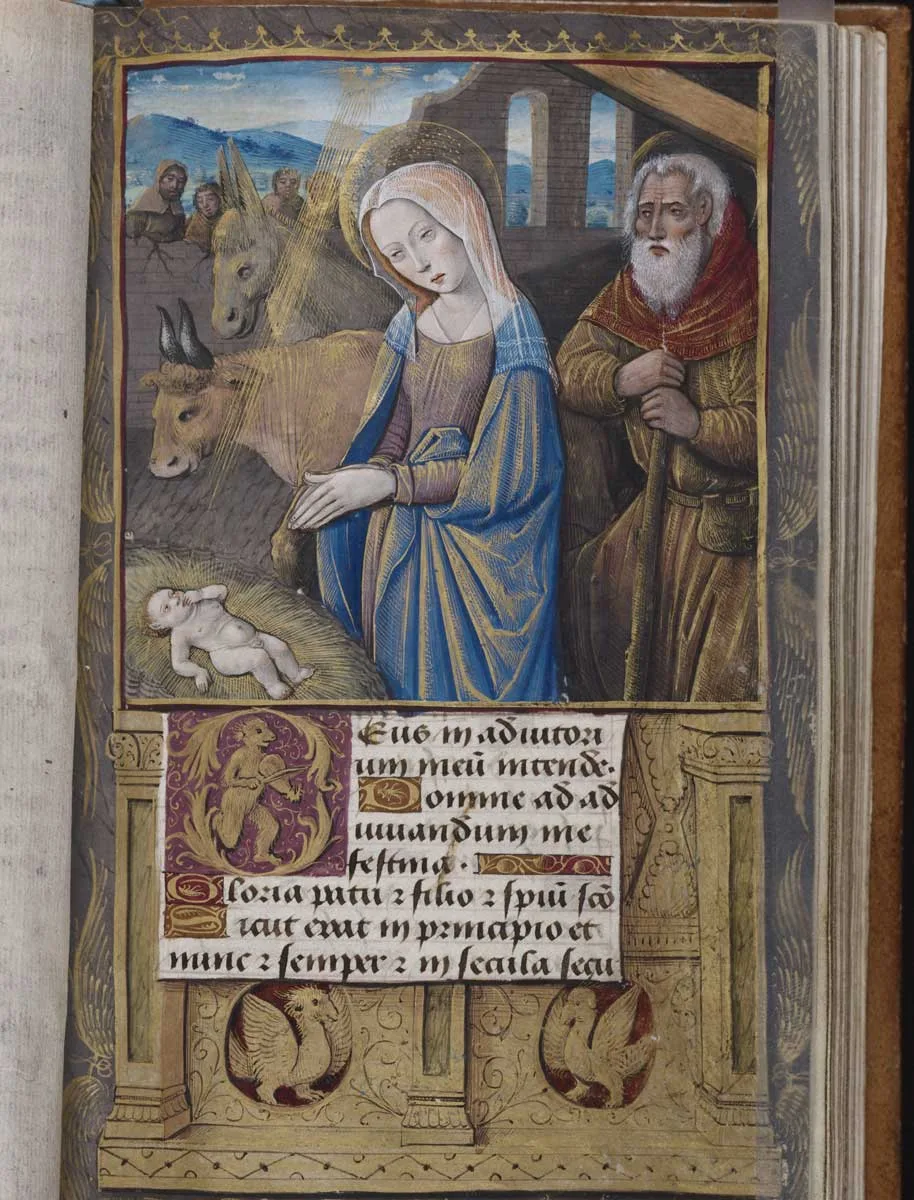 Deus in adiutori
um meū intende·
Domine ad ad
iuuandum me
festina·
Gloria patri ⁊ filio ⁊ spiūi scō
Sicut erat in principio et
nunc ⁊ semper ⁊ in secula secu